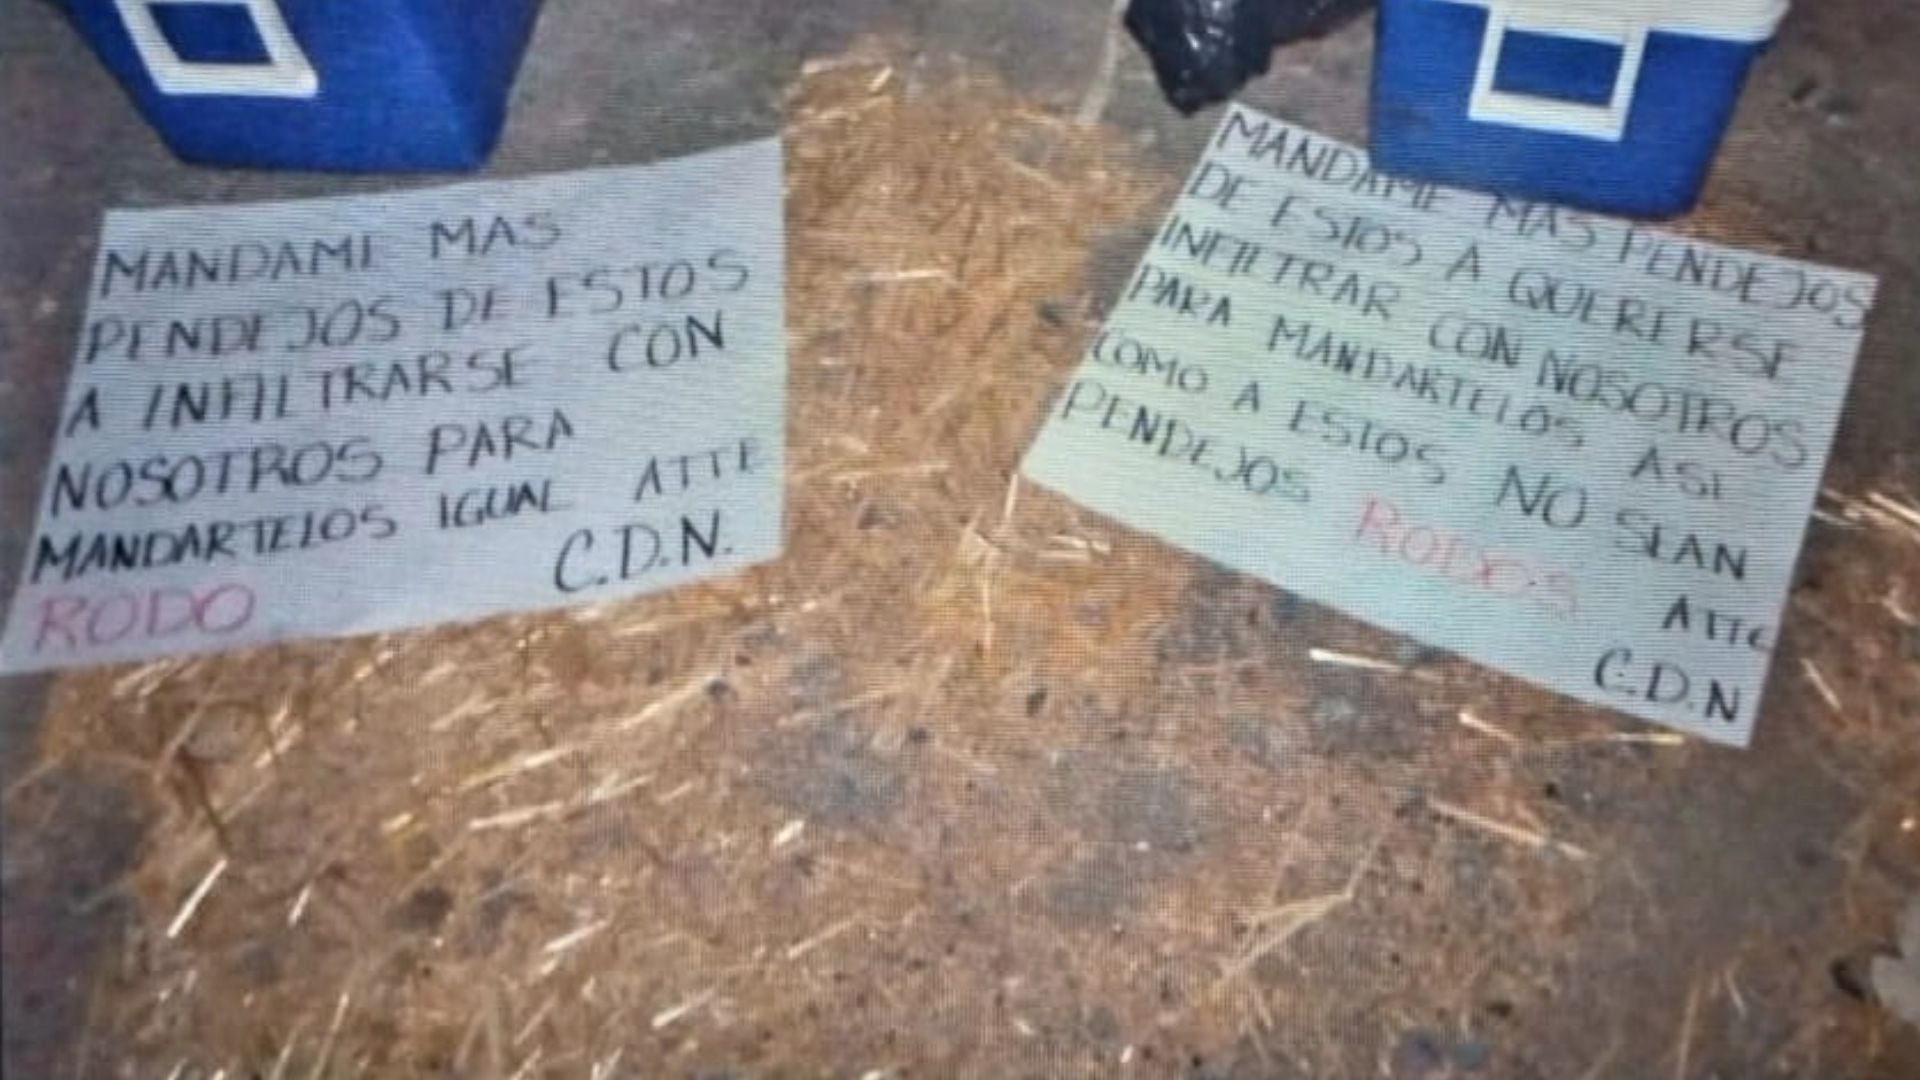 MANDAME MAS
PENDEJOS DE ESTOS
A INFILTRARSE CON
NOSOTROS PARA
MANDARTELOS IGUAL ATTE
C.D.N.
RODO
MANDAME MAS PENDEJOS
DE ESTOS A QUERERSE
INFILTRAR CON NOSOTROS
PARA MANDARTELOS ASI
COMO A ESTOS NO SEAN
PENDEJOS RODOS
ATTE
C.D.N